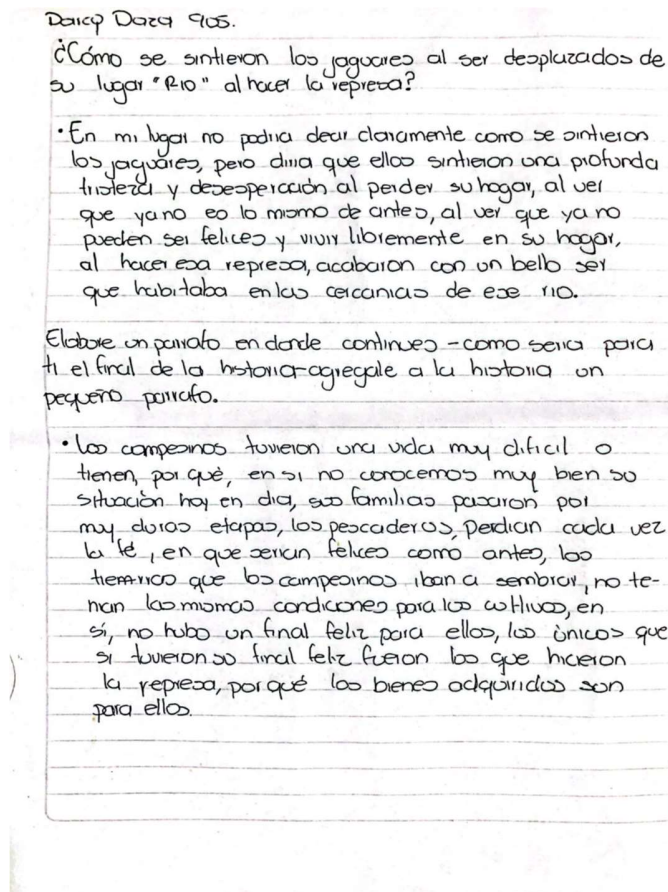 Daicy Daza 905.
¿Cómo se sintieron los jaguares al ser desplazados de
su lugar "RIO" al hacer la represa?
• En mi lugar no podria decir claramente como se sintieron
los jaguáres, pero diria que ellos sintieron una profunda
tristeza y desesperación al perder su hogar, al ver
que ya no es lo mismo de antes, al ver que ya no
pueden ser felices y vivir libremente en su hogar,
al hacer esa represa, acabaron con un bello ser
que habitaba en las cercanias de ese rio.
Elabore un parrafo en donde continues - como seria para
ti el final de la historia - agregale a la historia un
pequeño parrafo.
• Los campesinos tuvieron una vida muy dificil o
tienen, por qué, en si no conocemos muy bien su
situación hoy en dia, sus familias pasaron por
muy duras etapas, los pescaderos, perdian cada vez
la fé, en que serian felices como antes, los
que los campesinos iban a sembrar, no te-
nian las mismas condiciones para los cultivos, en
sí, no hubo un final feliz para ellos, los únicos que
si tuvieron su final feliz fueron los que hicieron
la represa, por qué los bienes adquiridos son
para ellos.